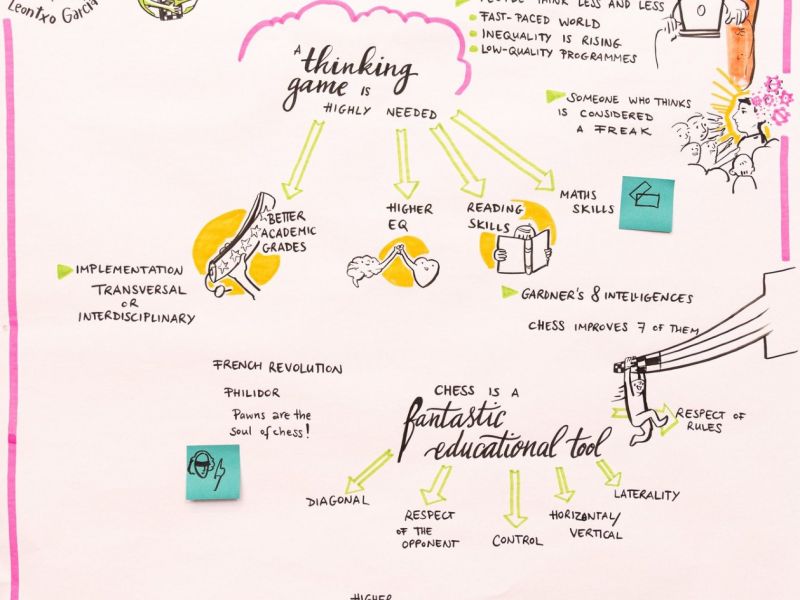 Leontxo García
PEOPLE THINK LESS AND LESS
FAST-PACED WORLD
INEQUALITY IS RISING
LOW-QUALITY PROGRAMMES
A
thinking
game is
HIGHLY NEEDED
SOMEONE WHO THINKS
IS CONSIDERED
A FREAK
BETTER
ACADEMIC
GRADES
HIGHER
EQ
READING
SKILLS
MATHS
SKILLS
IMPLEMENTATION
TRANSVERSAL
OR
INTERDISCIPLINARY
GARDNER'S 8 INTELLIGENCES
CHESS IMPROVES 7 OF THEM
FRENCH REVOLUTION
PHILIDOR
Pawns are the
soul of chess!
CHESS IS A
fantastic
educational tool
RESPECT OF
RULES
DIAGONAL
RESPECT
OF THE
OPPONENT
CONTROL
HORIZONTAL/
VERTICAL
LATERALITY
HIGHER